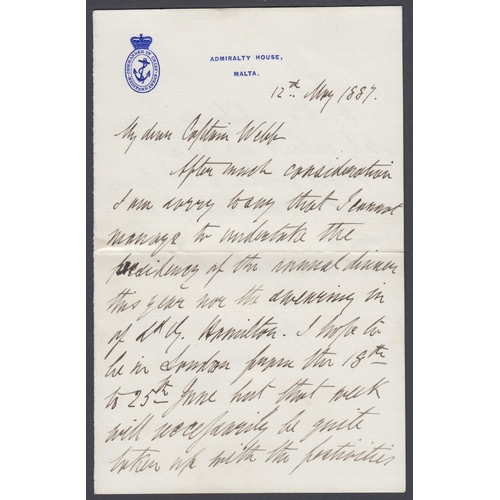 ADMIRALTY HOUSE,
MALTA.
12th May 1887.
My dear Captain Webb
After much consideration
I am sorry to say that I cannot
manage to undertake the
presidency of the annual dinner
this year nor the swearing in
of Ld G. Hamilton. I hope to
be in London from the 18th
to 25th June but that week
will necessarily be quite
taken up with the festivities